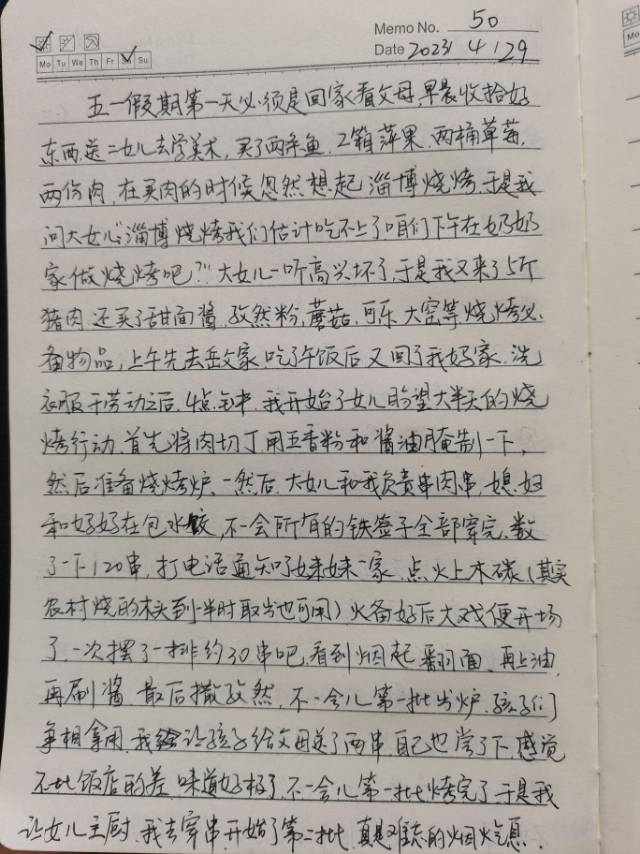 Memo No. 50
Mo Tu We Th Fr Sa Su
Date 2023 / 4 / 29
五一假期第一天必须是回家看父母,早晨收拾好
东西,送二女儿去学美术,买了两条鱼,2箱苹果,两桶草莓,
两份肉,在买肉的时候忽然想起淄博烧烤,于是我
问大女儿:"淄博烧烤我们估计吃不上了咱们下午在奶奶
家做烧烤吧?"大女儿一听高兴坏了,于是我又来了5斤
猪肉,还买了甜面酱,孜然粉,蘑菇,可乐,大窑等烧烤必
备物品,上午先去岳父家吃了午饭后又回了我妈家,洗
衣服干劳动之后,4点钟,我开始了女儿盼望大半天的烧
烤行动,首先将肉切丁用五香粉和酱油腌制一下,
然后准备烧烤炉,然后,大女儿和我负责串肉串,媳妇
和妈妈在包水饺,不一会所有的铁签子全部穿完,数
了一下120串,打电话通知了妹妹一家,点火上木碳(其实
农村烧的木头到一半时取出也可用)火备好后大戏便开场
了,一次摆了一排约30串吧,看到烟起,翻面,再上油,
再刷酱,最后撒孜然,不一会儿第一批出炉,孩子们
争相拿用,我让孩子给父母送了两串,自己也尝了下,感觉
不比饭店的差,味道好极了,不一会儿第一批烤完了于是我
让女儿主厨,我去穿串开始了第二批,真是难忘的烟火气息.